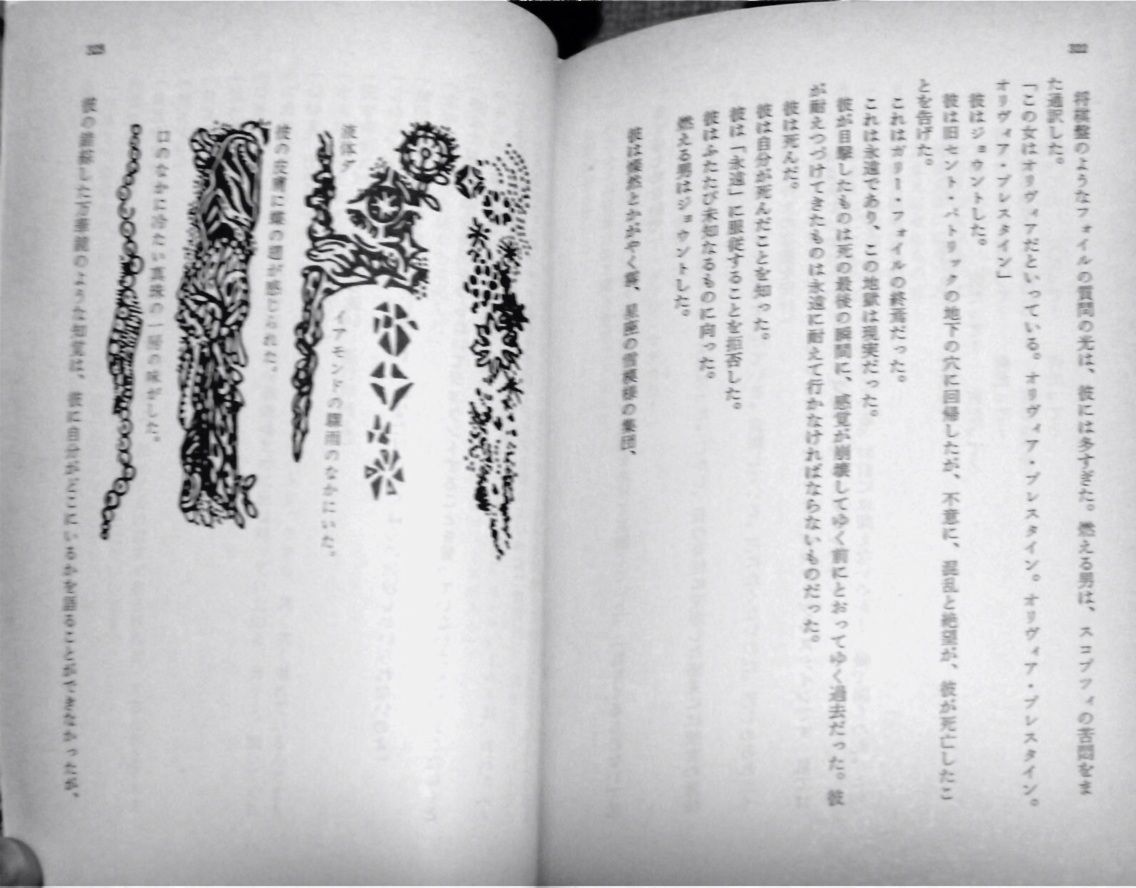 322
将棋盤のようなフォイルの質問の光は、彼には多すぎた。燃える男は、スコプツィの苦悶をま
た通訳した。
「この女はオリヴィアだといっている。オリヴィア・プレスタイン。オリヴィア・プレスタイン。
オリヴィア・プレスタイン」
彼はジョウントした。
彼は旧セント・パトリックの地下の穴に回帰したが、不意に、混乱と絶望が、彼が死亡したこ
とを告げた。
これはガリー・フォイルの終焉だった。
これは永遠であり、この地獄は現実だった。
彼が目撃したものは死の最後の瞬間に、感覚が崩壊してゆく前にとおってゆく過去だった。彼
が耐えつづけてきたものは永遠に耐えて行かなければならないものだった。
彼は死んだ。
彼は自分が死んだことを知った。
彼は「永遠」に服従することを拒否した。
彼はふたたび未知なるものに向った。
燃える男はジョウントした。
彼は燦然とかがやく霧、星座の雪模様の集団、
323
液体ダ
イアモンドの驟雨のなかにいた。
彼の皮膚に蝶の翅が感じられた。
口のなかに冷たい真珠の一房の味がした。
彼の錯綜した万華鏡のような知覚は、彼に自分がどこにいるかを語ることができなかったが、